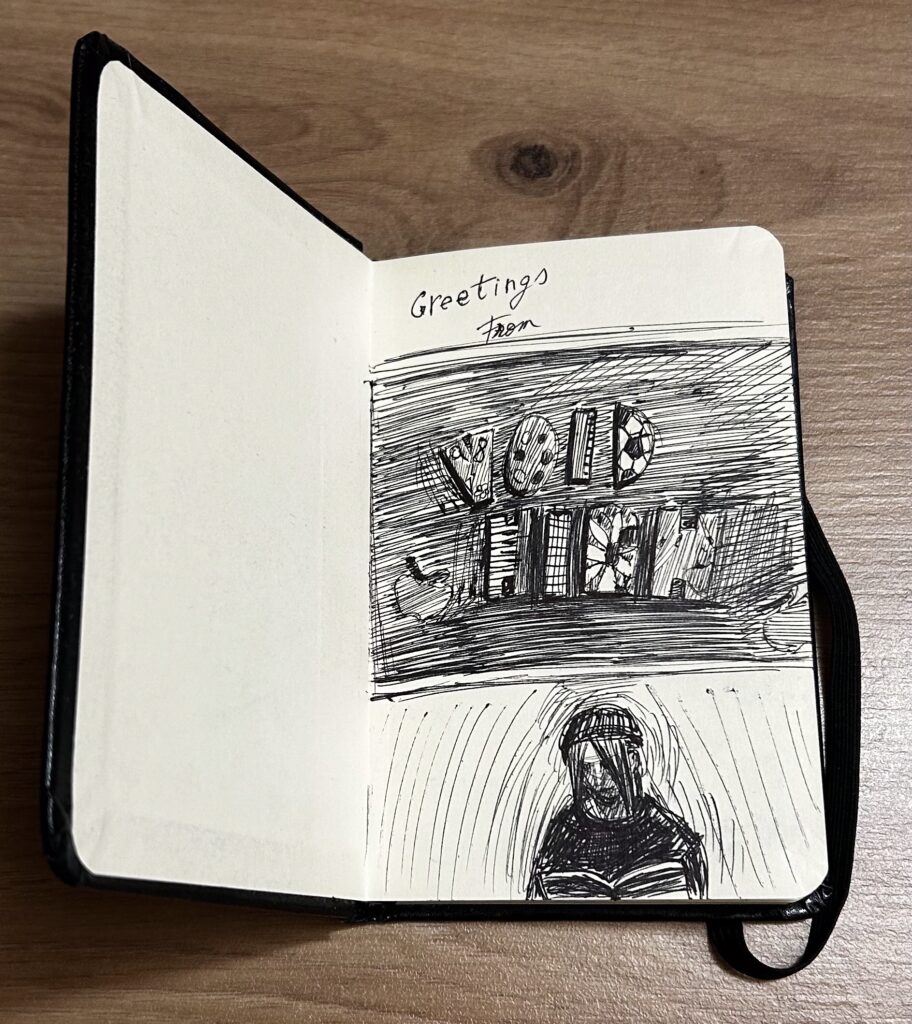 Greetings
From
VOID